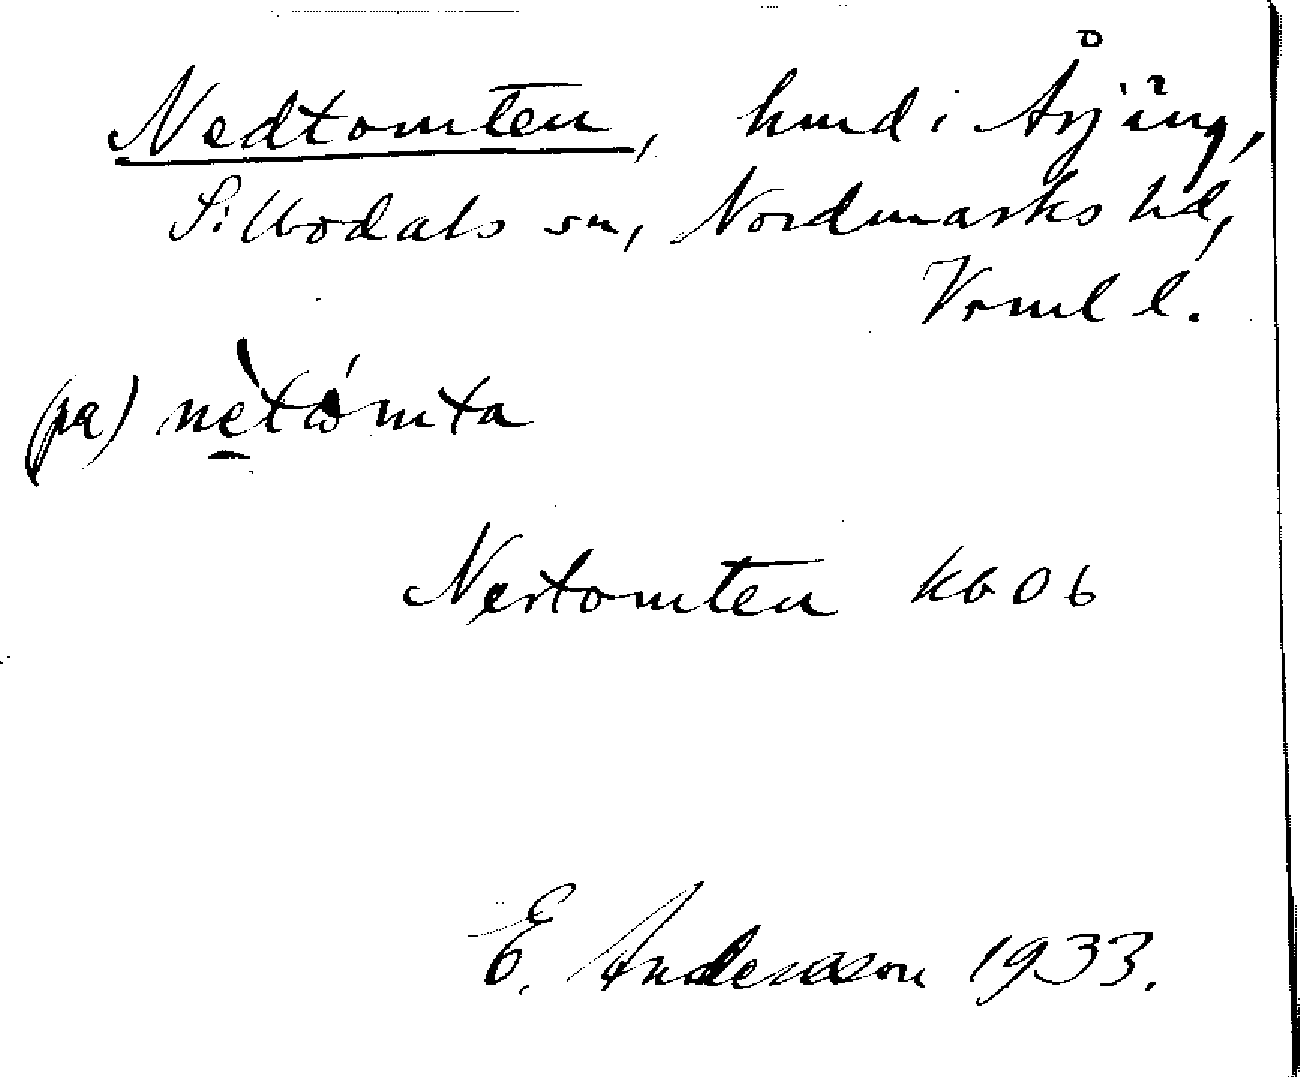 Nedtomten, hmd i Årjäng,
Sillbodals sn, Nordmarks hd,
Vrml l.
(pa) nètómta
Nertomten Kb 06
E. Andersson 1933.